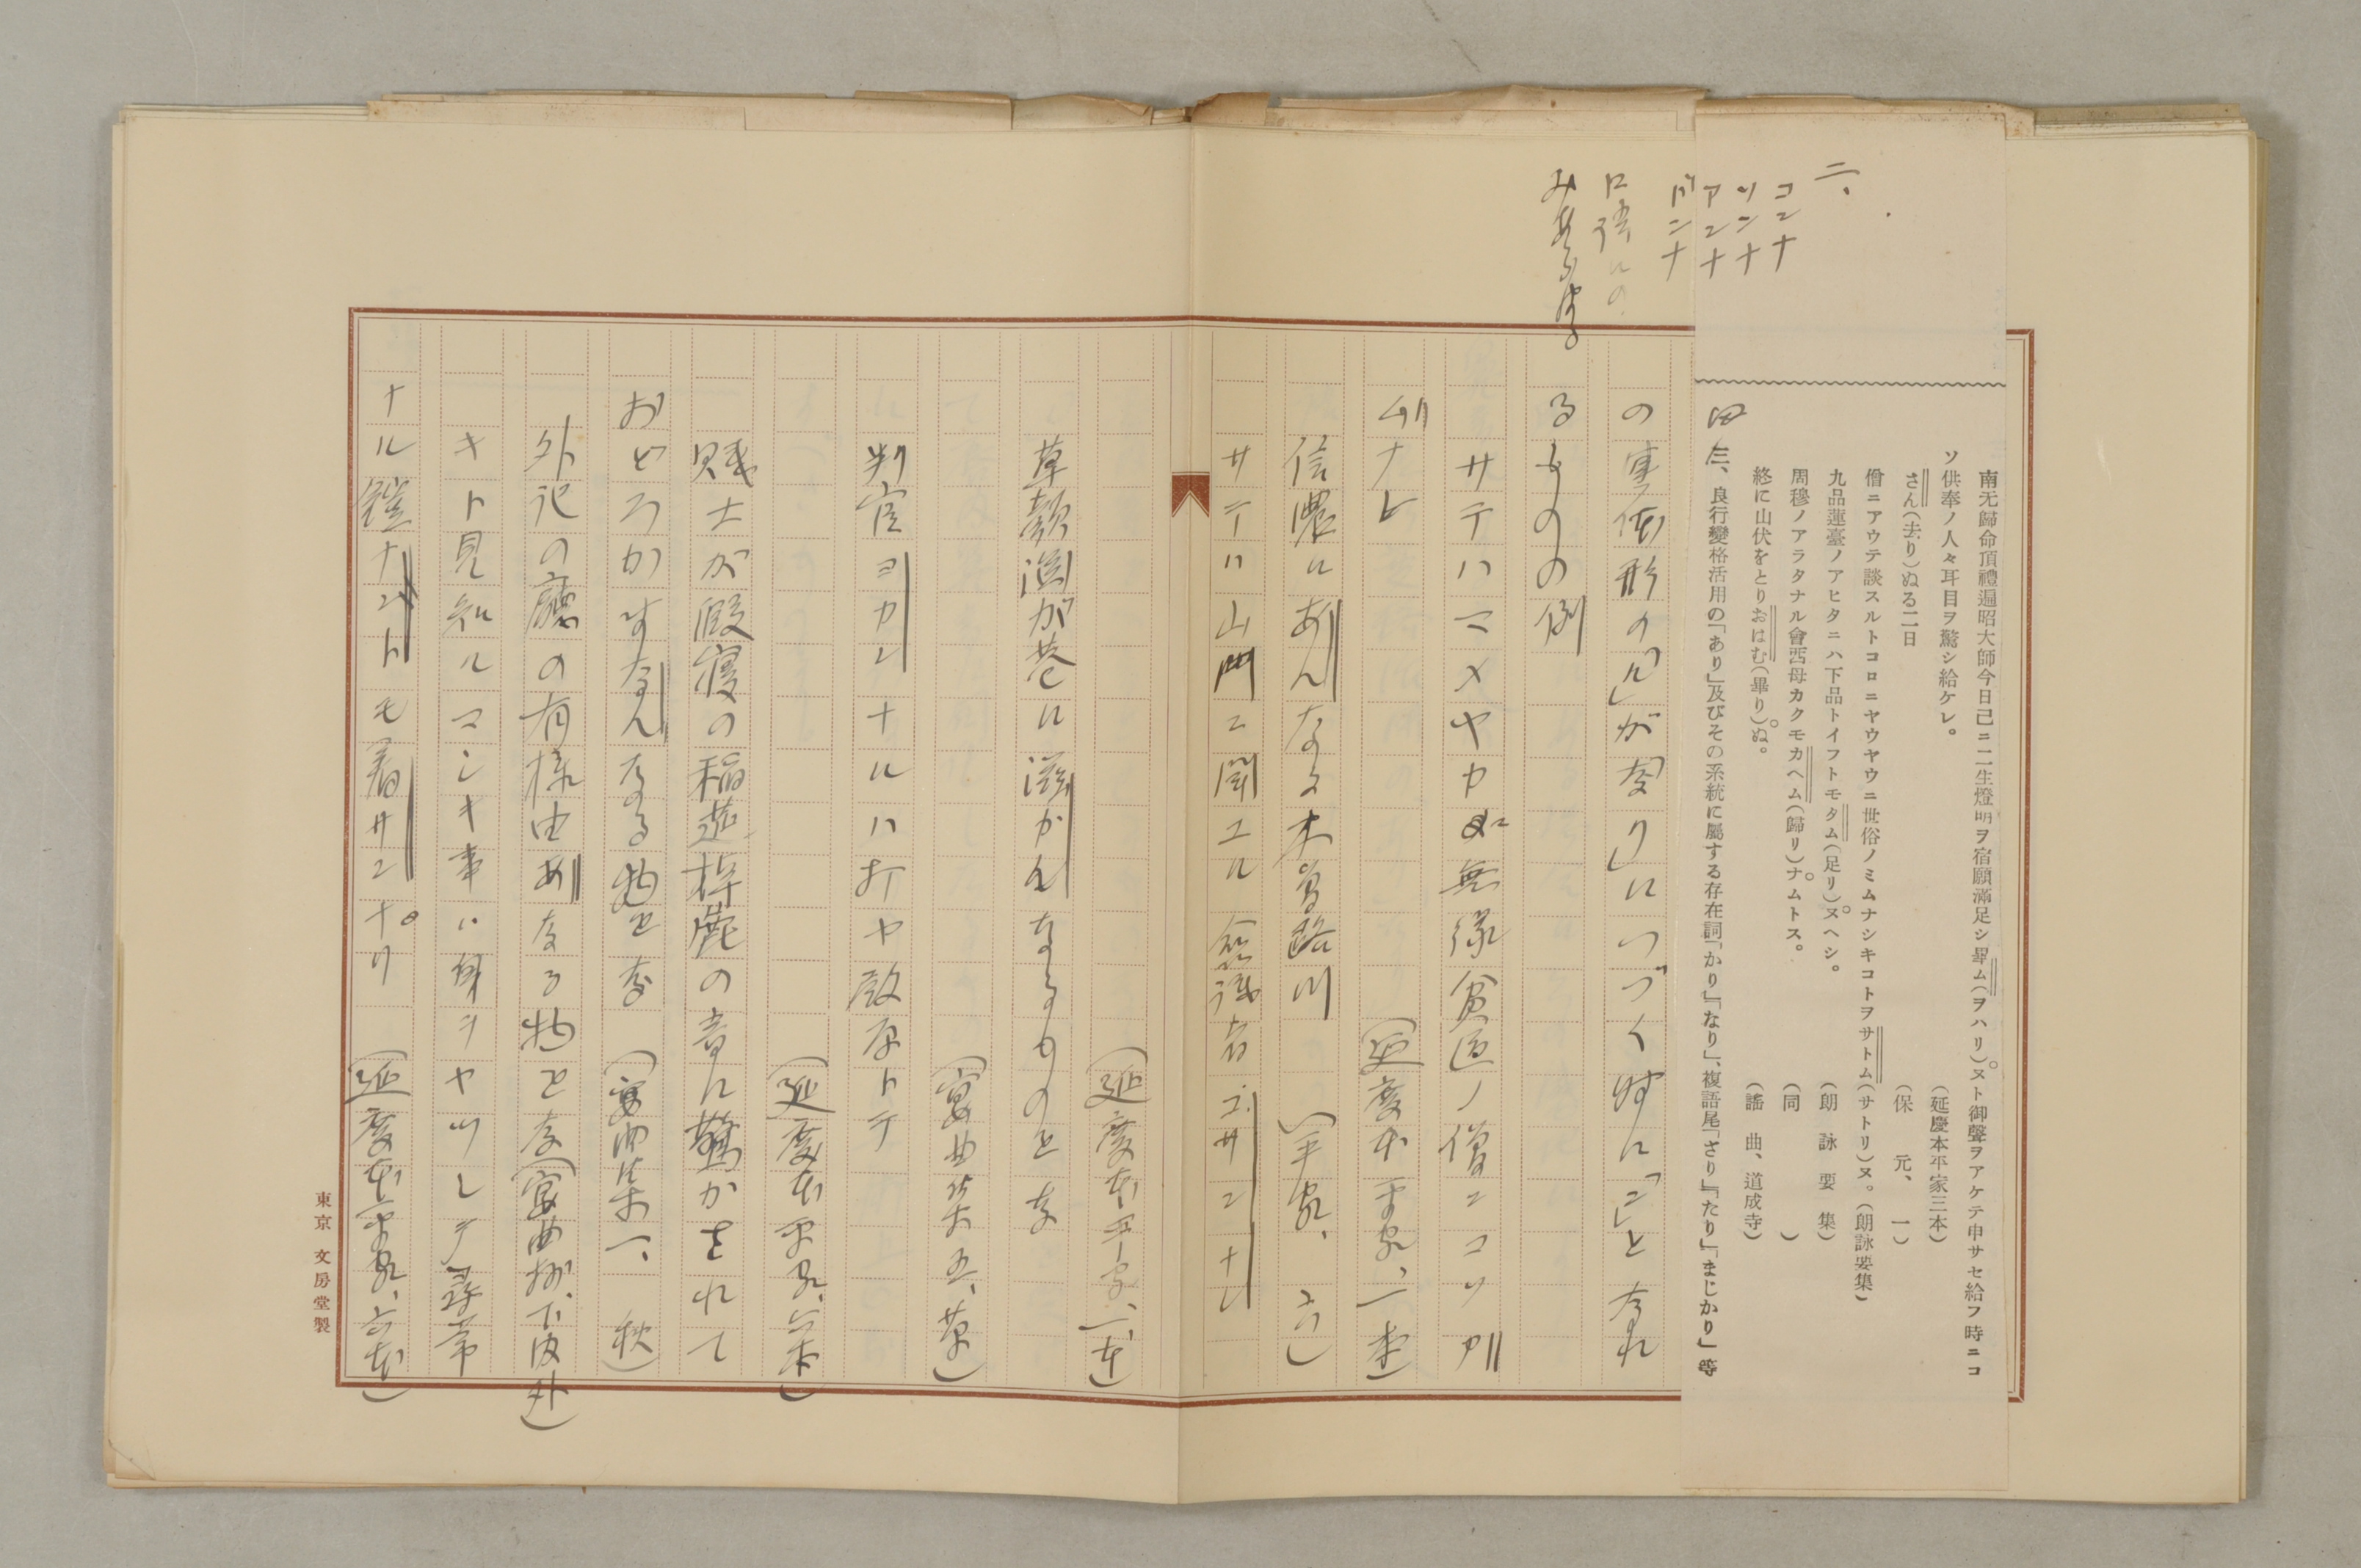 二、
コンナ
ソンナ
アンナ
ドンナ
口語にの
みあらは
南无歸命頂禮遍昭大師今日己ニ二生燈明ヲ宿願滿足シ畢ム(ヲハリ)ヌト御聲ヲアケテ申サセ給フ時ニコ
ソ供奉ノ人々耳目ヲ驚シ給ケレ。(延慶本平家三本)
さん(去り)ぬる二日(保元、一)
僧ニアウテ談スルトコロニヤウヤウニ世俗ノミムナシキコトヲサトム(サトリ)ヌ。(朗詠要集)
九品蓮臺ノアヒタニハ下品トイフトモタム(足リ)ヌヘシ。(朗詠要集)
周穆ノアラタナル會西母カクモカヘム(歸リ)ナムトス。(同)
終に山伏をとりおはむ(畢り)ぬ。(謠曲、道成寺)
四三、良行變格活用の「あり」及びその系統に屬する存在詞「かり」「なり」、複語尾「さり」「たり」「まじかり」等
の連体形の「ル」が「なり」につづく時に「ン」となれ
るものの例
サテハマメヤカニ無縁貧道ノ僧ニコソア
ムナレ(延慶本平家、一本)
信濃にあんなる木曽路川(平家、六)
サテハ山門ニ聞エル僉議者ゴサンナレ
(延慶本平家、一本)
草顏淵が巷に滋かんなるものとな
(宴曲集五、草)
判官ヨカンナルハ打ヤ殿原トテ
(延慶本平家、六本)
賤士が假寢の稲莚棹鹿の音に驚かされて
おどろかすなんなる物とな(宴曲集一、秋)
外記の廳の有樣由あなる物とな(宴曲抄、下内外)
キト見知ルマシキ事ハ身ヲヤツレテ尋常
ナル鎧ナントモ着サンナリ(延慶本平家、六本)
東京 文房堂製